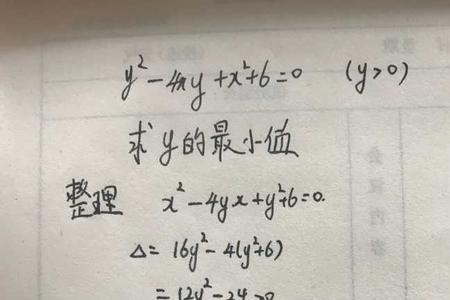 y²-4xy+x²+6=0 (y>0)
求y的最小值
整理 x²-4yx+y²+6=0.
Δ= 16y²-4(y²+6)
=12y²-24≥0